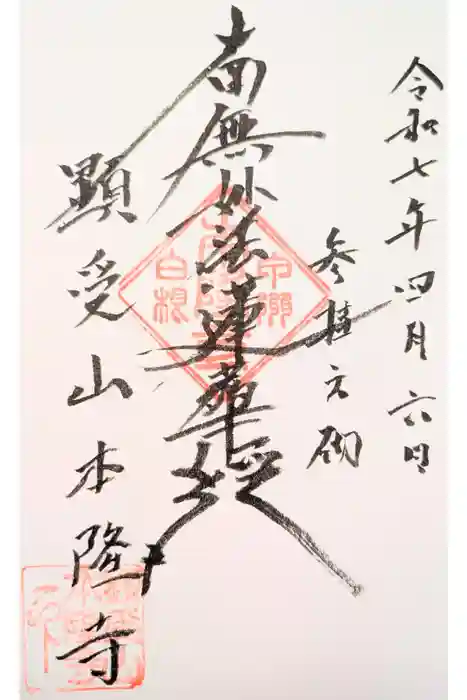 令和七年四月六日
参拝之砌
南無妙法蓮華経
顕受山本隆寺
白根